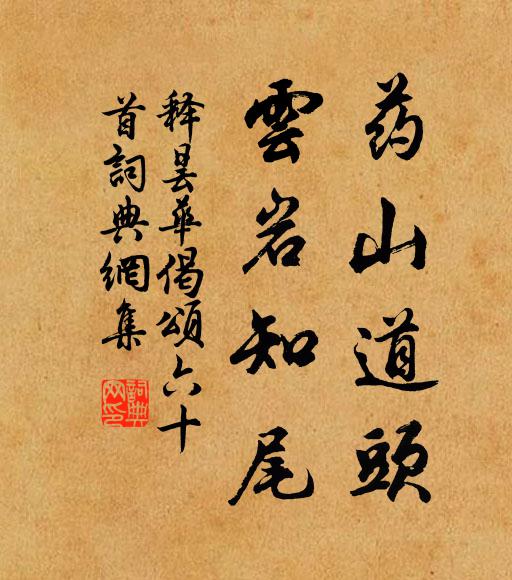 药山道頭
雲岩知尾
释曇華偈頌六十
首詞典網集
詞典網印